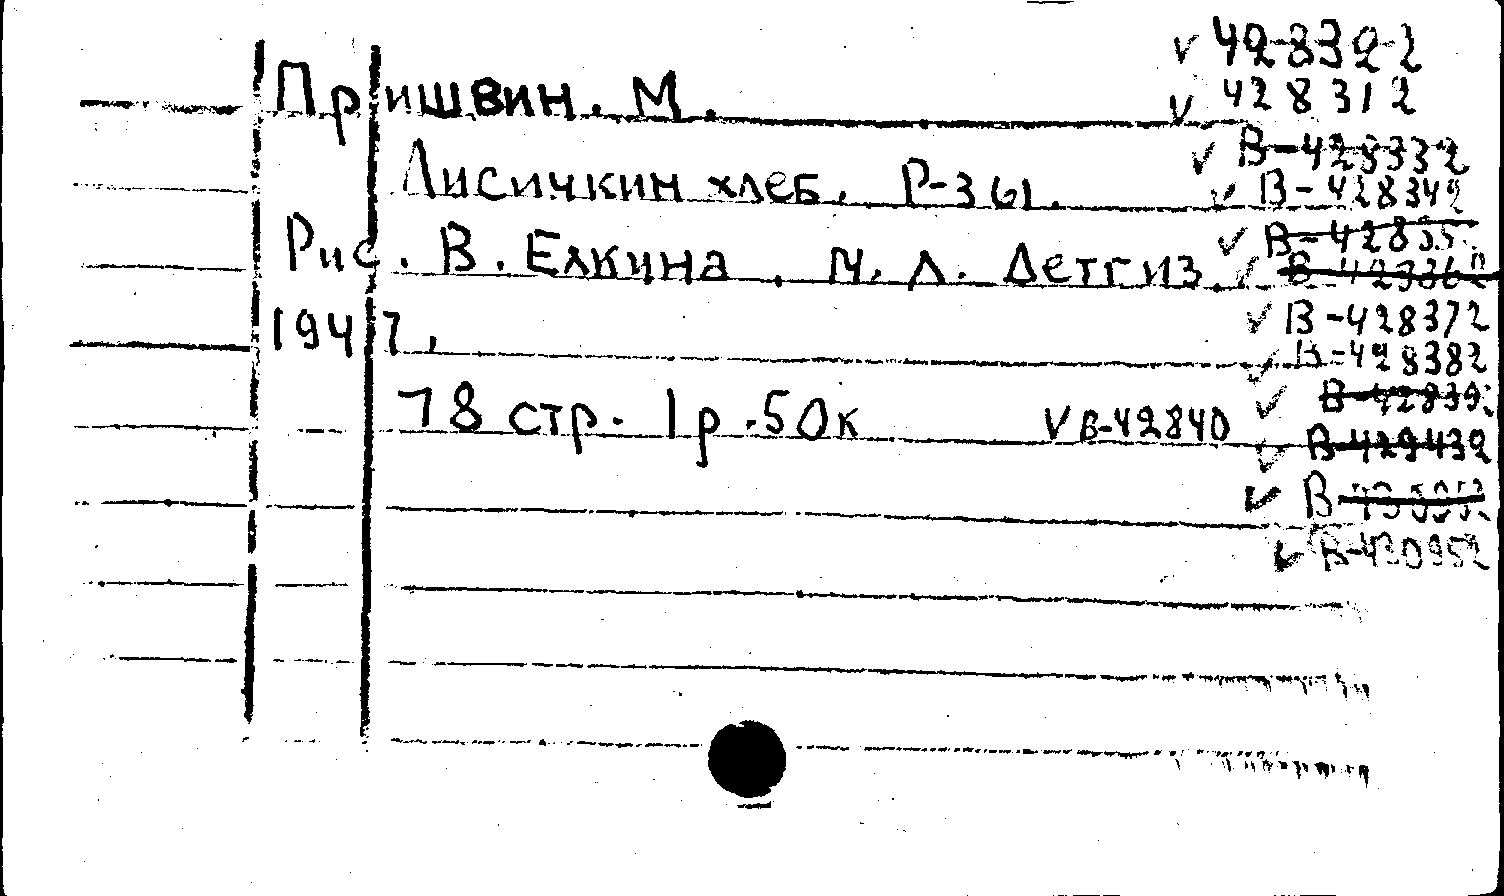 Пришвин. М.
Лисичкин хлеб. Р-361.
Рис. В. Елкина, М. Л. Детгиз.
1947,
78 стр. 1р.50к
V В-42840
V 428322
V 428312
V В-428332
V В-428342
V В-42835
V В-428362
V В-428372
V В-428382
V В-42839
V В-429432
V В-
V В-430952